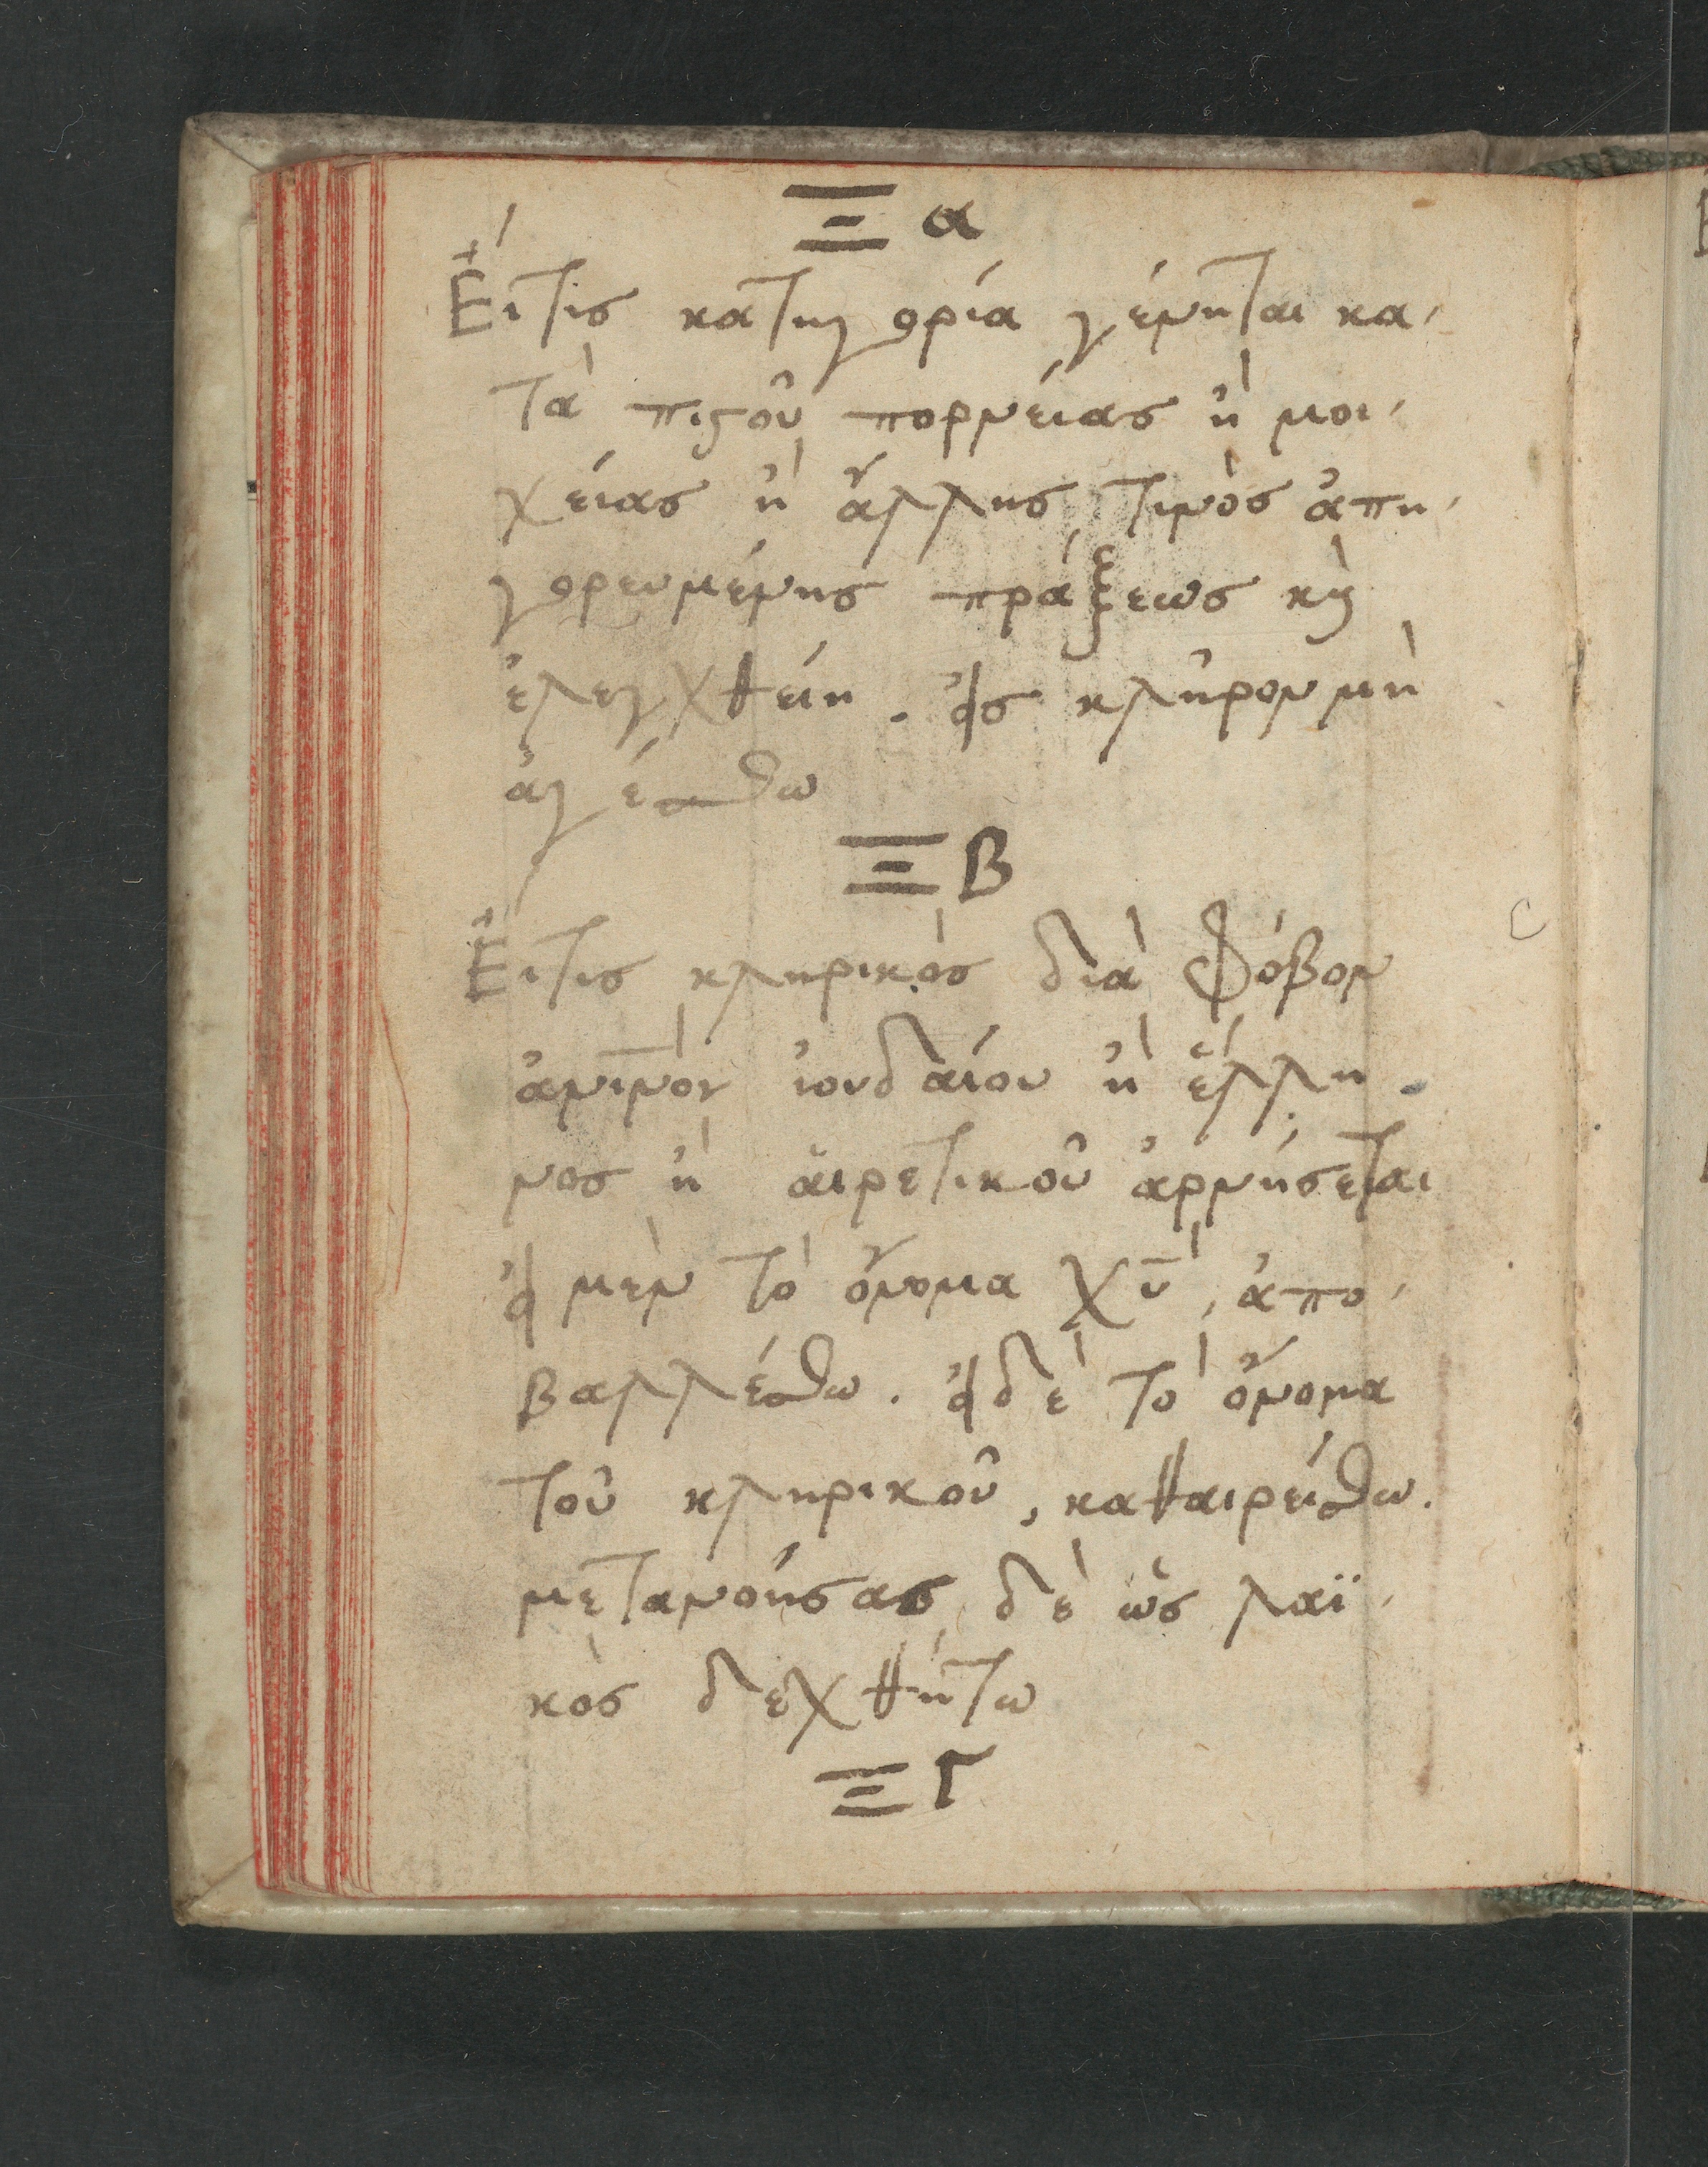 Ξα
Εἴτις κατηγορία γένηται κα-
τὰ πιϛοῦ πορνείας ἢ μοι-
χείας ἢ ἄλλης τινὸς ἀπη-
γορευμένης πράξεως κỳ
ἐλεγχθείη. εἰς κλῆρον μὴ
ἀγέσθω
ΞΒ
Εἴτις κληρικὸς διὰ φόβον
ἀνῑνὸν ἰουδαίου ἢ ἕλλη-
νος ἢ αἱρετικοῦ ἀρνήσεται
εἰ μεν τὸ ὄνομα χῡ, ἀπο-
βαλλέσθω. εἰ δὲ τὸ ὄνομα
τοῦ κληρικοῦ, καθαιρείσθω.
μετανοήσας δὲ ὡς λαϊ-
κὸς δεχθήτω
ΞΓ